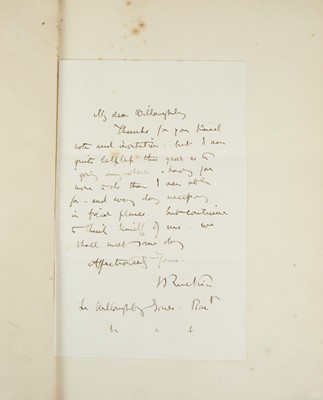 My dear Willoughby
Thanks for your kind
note and invitation - but I am
quite helpless this year as to
going any where - having far
more to do than I am able
for - and every day necessary
in fixed places. But continue
to think kindly of me - we
shall meet some day
Affectionately Yours
J Ruskin
Sir Willoughby Jones. Bart